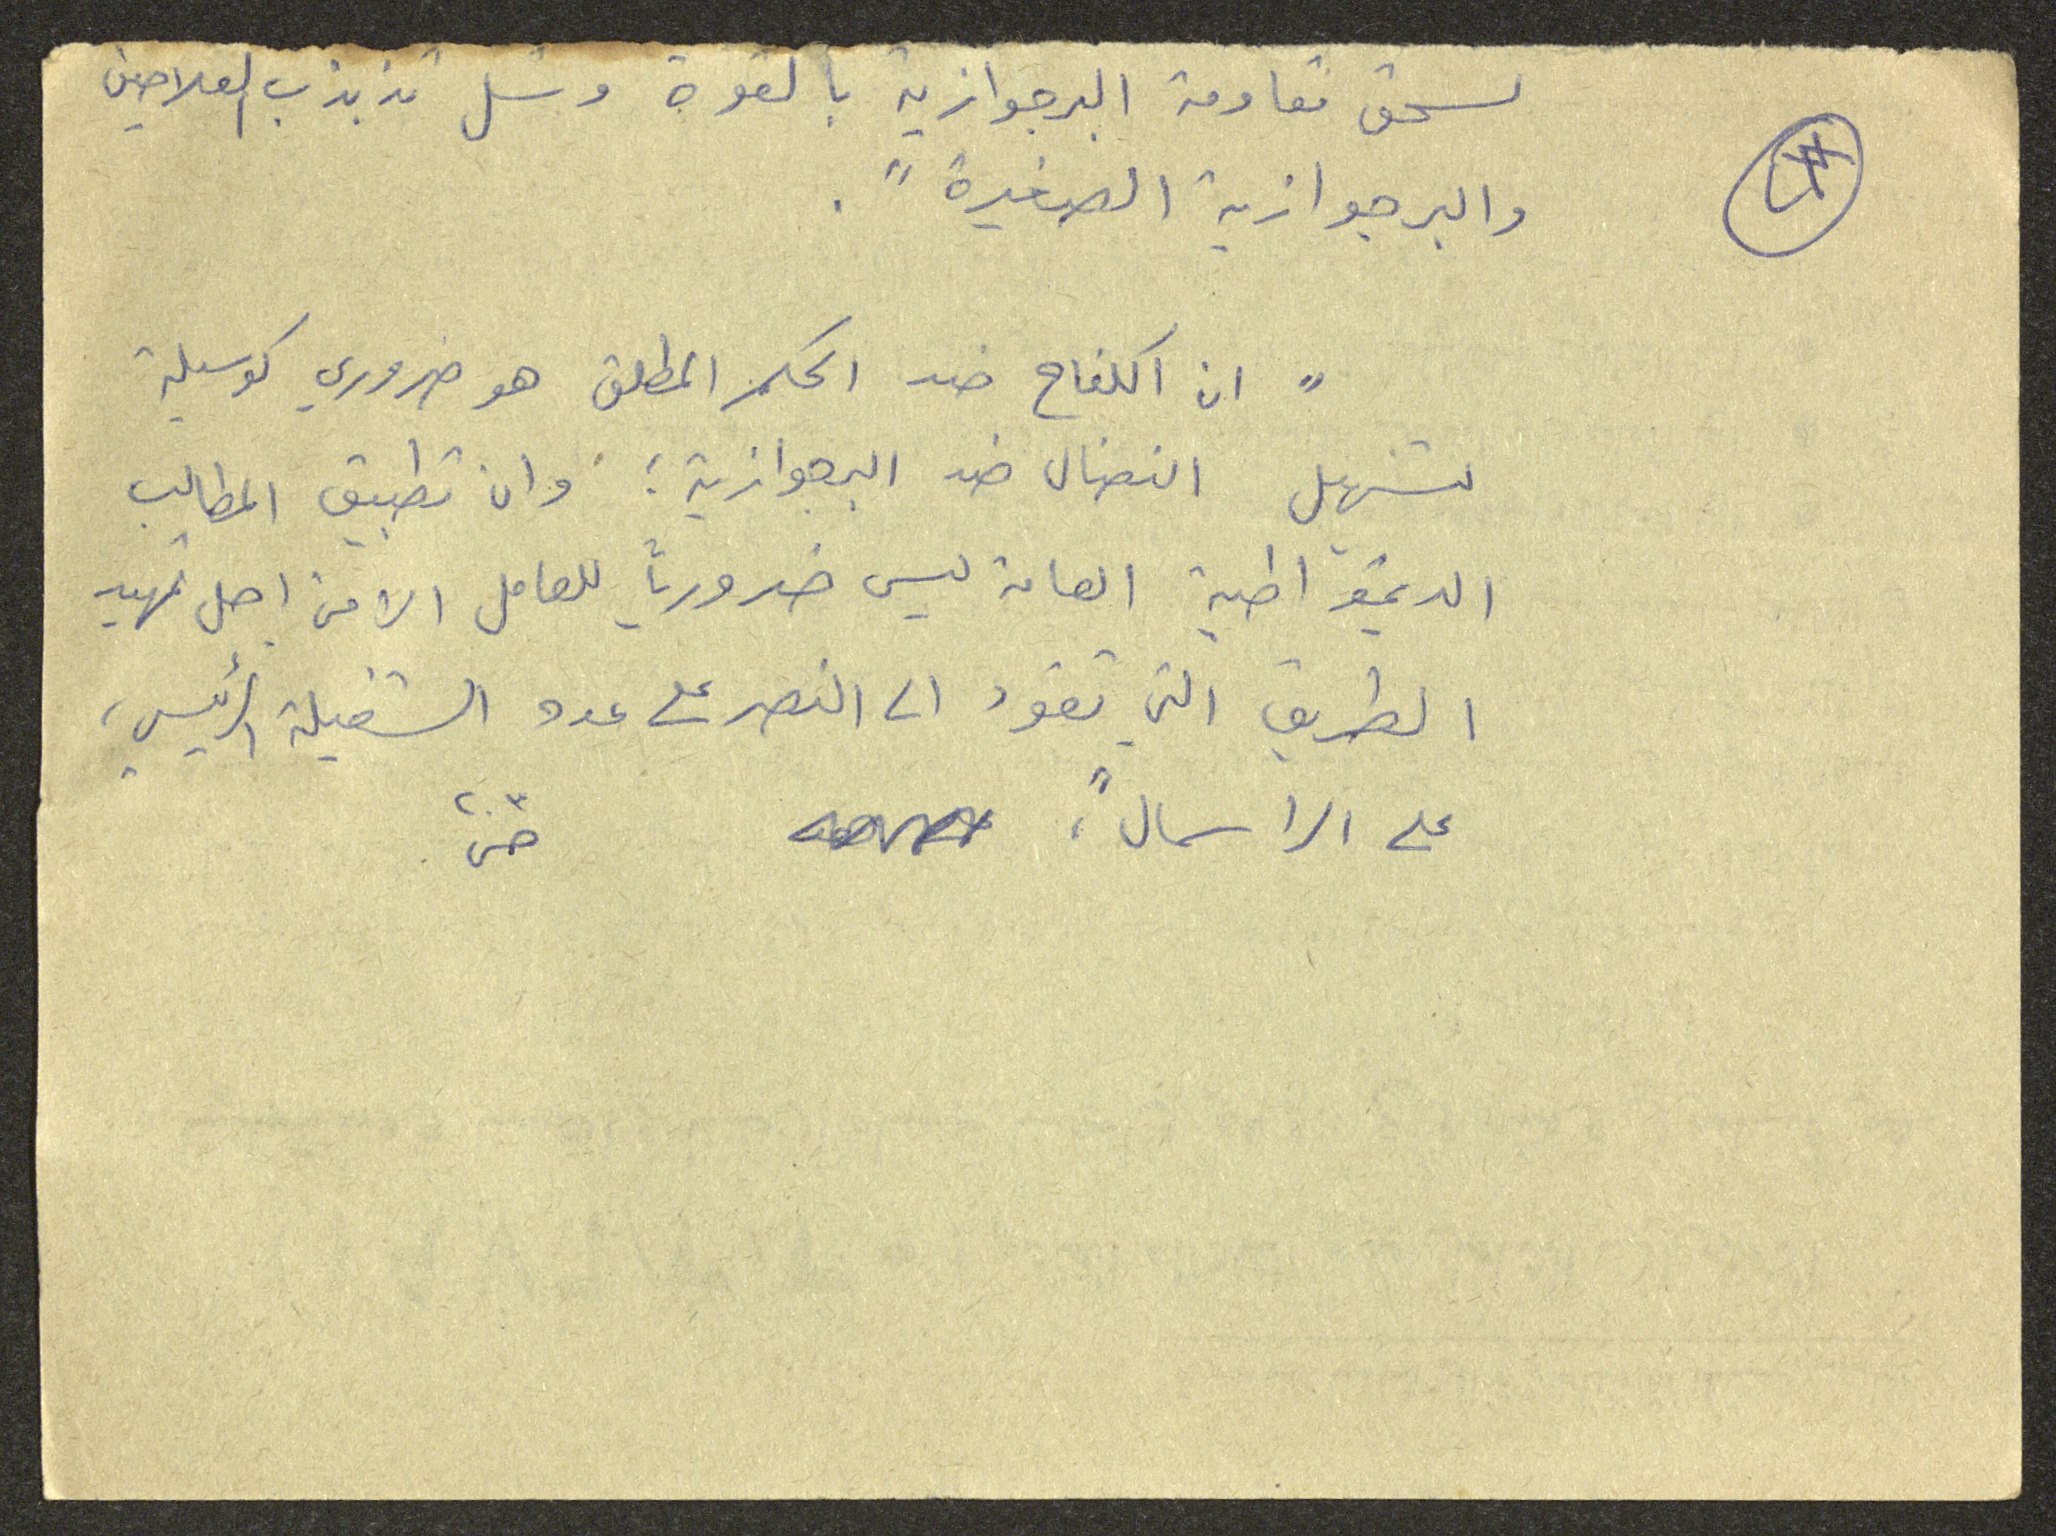 لسحق مقاومة البرجوازية بالقوة وشل تذبذب الفلاحين
والبرجوازية الصغيرة".
" ان الكفاح ضد الحكم المطلق هو ضروري كوسيلة
لتسهيل النضال ضد البرجوازية؛ وان تطبيق المطالب
الديمقراطية العامة ليس ضرورياً للعامل الا من اجل تمهيد
الطريق التي تقود الى النصر على عدو الشغيلة الرئيسي،
على الرأسمال"،
ص ٢٠٣